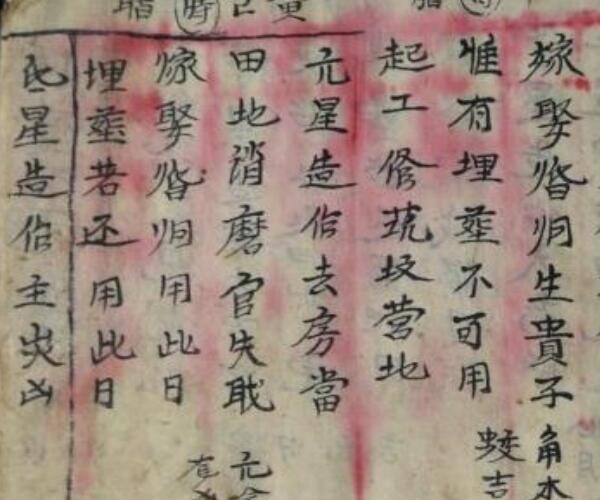 嫁娶婚归生貴子 角木
惟有埋葬不可用 蛟吉
起工修筑坟营地
亢星造作去房當
田地消磨官失耺 亢金
嫁娶婚归用此日
埋葬若还用此日
氐星造作主災凶